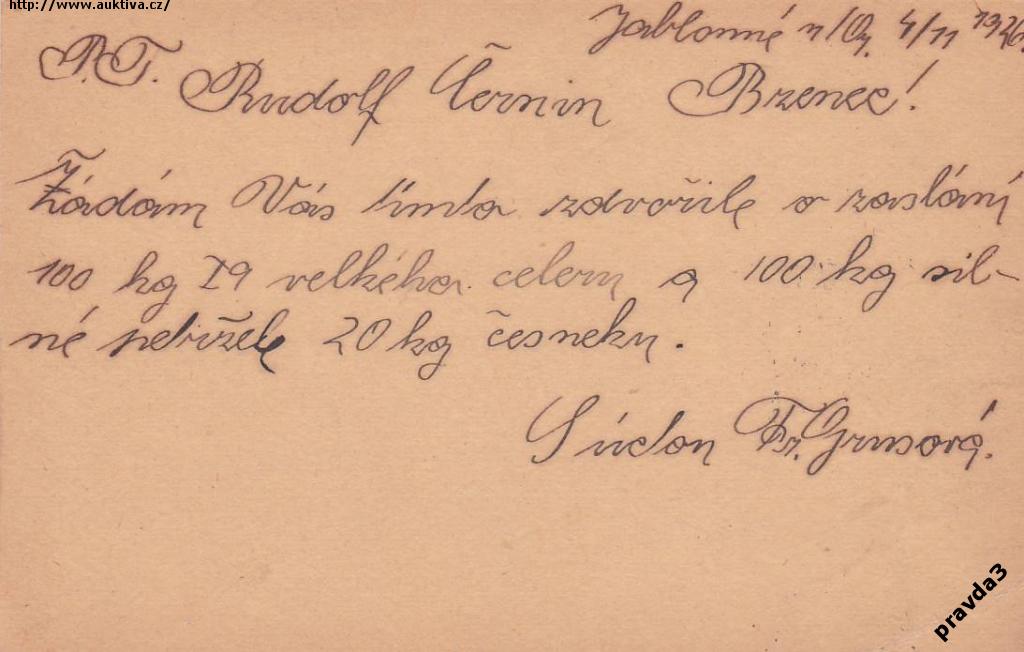 http://www.auktiva.cz/
Jablonné n/Or. 4/11 1926.
P.T.
Rudolf Černin Bzenec!
Žádám Vás tímto zdvořile o zaslání
100 kg velkého celeru a 100 kg sil-
né petržele 20 kg česneku.
S úctou Fr. Grusová.
pravda3